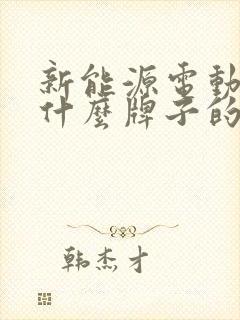 新能源電動
什麼牌子的
韩杰才